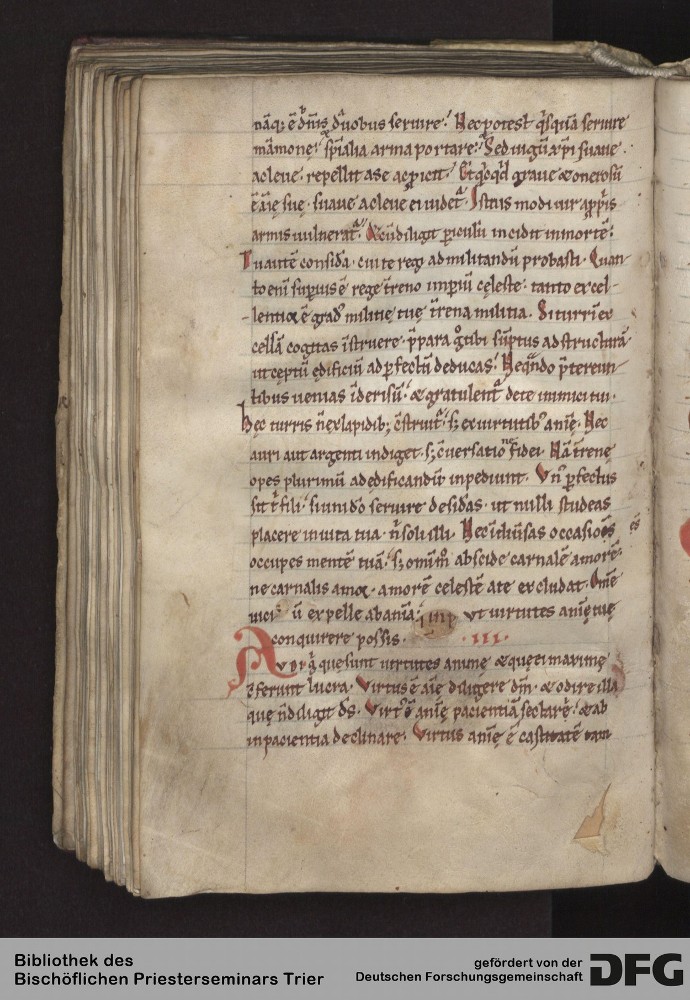 nãq; ẽ dñis duobus seruire. Nec potest q̃squã seruire
mãmonę. sp̃ialia arma portare. Sed iugũ xp̃i suaue
ac leue. repellit a se ac p̱icit. Et q̃cq̃d graue & onerosũ
ẽ aĩę suę. suaue ac leue ei uidet᷑. Istius modi uir app̱riis
armis uulnerat᷑. & cũ diligit periculũ incidit in mortẽ.
Tu autẽ considera. cui te regi ad militandũ probasti. Quan-
to enĩ superius ẽ rege t̃reno imperiũ cęleste. tanto excel-
lentior ẽ gradꝰ militię tuę t̃rena militia. Si turrĩ ex
cellã cogitas ĩstruere. p̃para tibi sũptus ad structurã
ut cęptũ ędificiũ ad ꝑfectũ deducas. Ne q̃ndo p̃tereun-
tibus uenias ĩ derisũ. & gratulent᷑ de te inimici tui.
Hęc turris ñ ex lapidib; c̃struit᷑. s; ex uirtutibꝰ anĩę. Nec
auri aut argenti indiget. s; c̃uersationẽ fidei. Nã t̃renę
opes plurimũ ad edificandũ inpediunt. Vñ ꝑfectus
sis fili. si um̃ dño seruire desid̃as. ut nulli studeas
placere in uita tua. ñ soli illi. Nec ĩ diũsas occasiões
occupes mentẽ tuã. s; omĩm̊ abscide carnalẽ amorẽ.
ne carnalis amor. amorẽ celestẽ a te excludat. Om̃e
uiciũ expelle ab anĩa. ut uirtutes anĩę tuę
conquirere possis. .III.
Audi q̃ quę sunt uirtutes animę & quę ei maximę
c̃ferunt lucra. Virtus ẽ aĩę diligere dm̃. & odire illa
quę ñ diligit dš. Virtꝰ ẽ anĩę pacientiã sectare. & ab
inpacientia declinare. Virtus anĩę ẽ castitatẽ tam
Bibliothek des
Bischöflichen Priesterseminars Trier
gefördert von der
Deutschen Forschungsgemeinschaft DFG